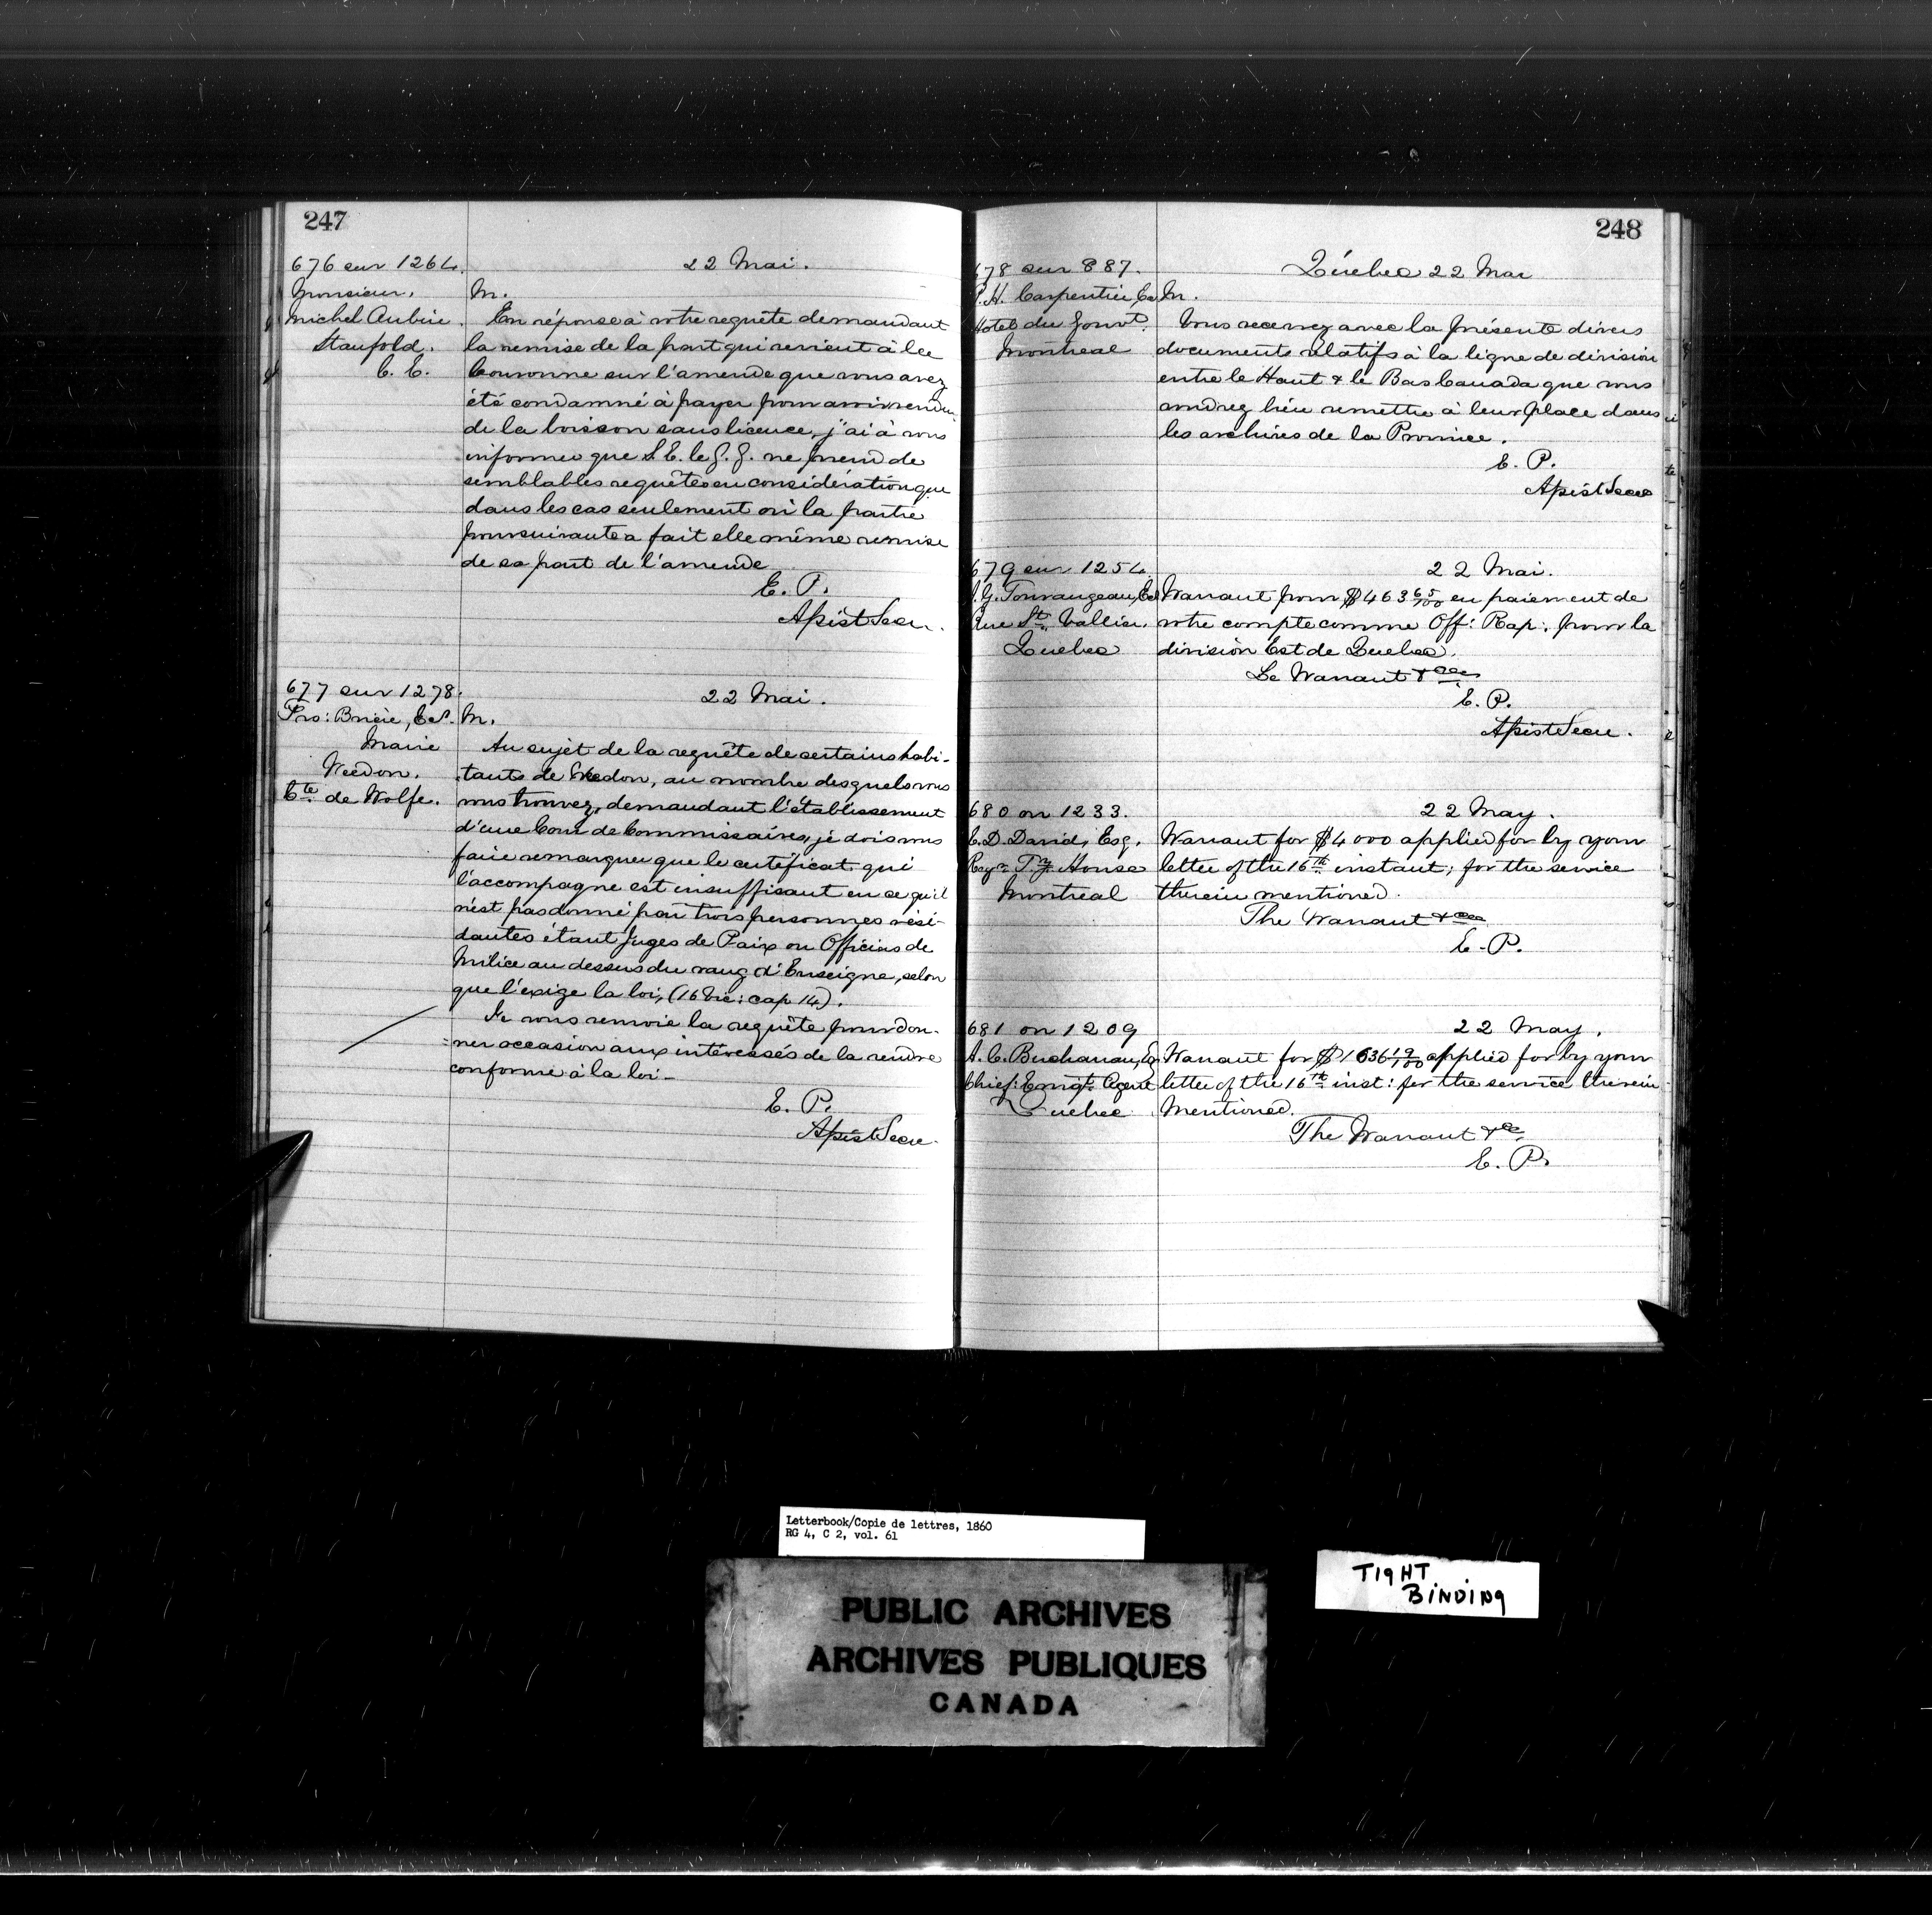 247
676 sur 1264.
22 Mai.
Monsieur,
Michel Aubin
Stanfold.
C. E.
M.
En réponse à votre requête demandant
la remise de la part qui revient à la
Couronne sur l'amende que vous avez
été condamné à payer pour avoir vendu
de la boisson sans licence, j'ai à vous
informer que S. E. le G. G. ne prend de
semblables requêtes en considération que
dans les cas seulement où la partie
poursuivante a fait elle même remise
de sa part de l'amende
E. P.
Assist Secre.
677 sur 1278.
22 Mai.
Brière, Ecr.
Maire
Weedon.
Cté. de Wolfe.
M.
Au sujet de la requête de certains habi-
tants de Weedon, au nombre desquels vous
vous trouvez, demandant l'établissement
d'une Cour de Commissaires, je dois vous
faire remarquer que le certificat qui
l'accompagne est insuffisant en ce qu'il
n'est pas donné par trois personnes rési-
dantes étant Juges de Paix ou Officiers de
Milice au dessus du rang d'Enseigne, selon
que l'exige la loi, (16 Vic: cap 14).
Je vous renvoie la requête pour don-
ner occasion aux intéressés de la rendre
conforme à la loi -
E. P.
Assist Secre.
248
678 sur 887.
Québec 22 Mai
P. H. Carpentier, Ecr
Hotel du Gouvt.
Montreal
M.
Vous recevrez avec la présente divers
documents relatifs à la ligne de division
entre le Haut & le Bas Canada que vous
voudrez bien remettre à leur place dans
les archives de la Province.
E. P.
Assist Secre
679 sur 1254.
22 Mai.
J. G. Tourangeau, Ecr
Rue St. Vallier.
Quebec
Warrant pour $463 65/100 en paiement de
votre compte comme Off: Rap: pour la
division Est de Quebec.
Le Warrant &ca
E. P.
Assist Secre.
680 on 1233.
22 May.
E. D. David, Esq.
Regr. Ty. House
Montreal
Warrant for $4000 applied for by your
letter of the 16th instant; for the service
therein mentioned.
The Warrant &ca
E. P.
681 on 1209
22 May.
A. C. Buchanan, Eq
Chief: Emigt. Agent
Quebec
Warrant for $1636 19/100 applied for by your
letter of the 16th inst: for the service therein
Mentioned.
The Warrant &c.
E. P.
Letterbook/Copie de lettres, 1860
RG 4, C 2, vol. 61
PUBLIC ARCHIVES
ARCHIVES PUBLIQUES
CANADA
TIGHT
BINDING